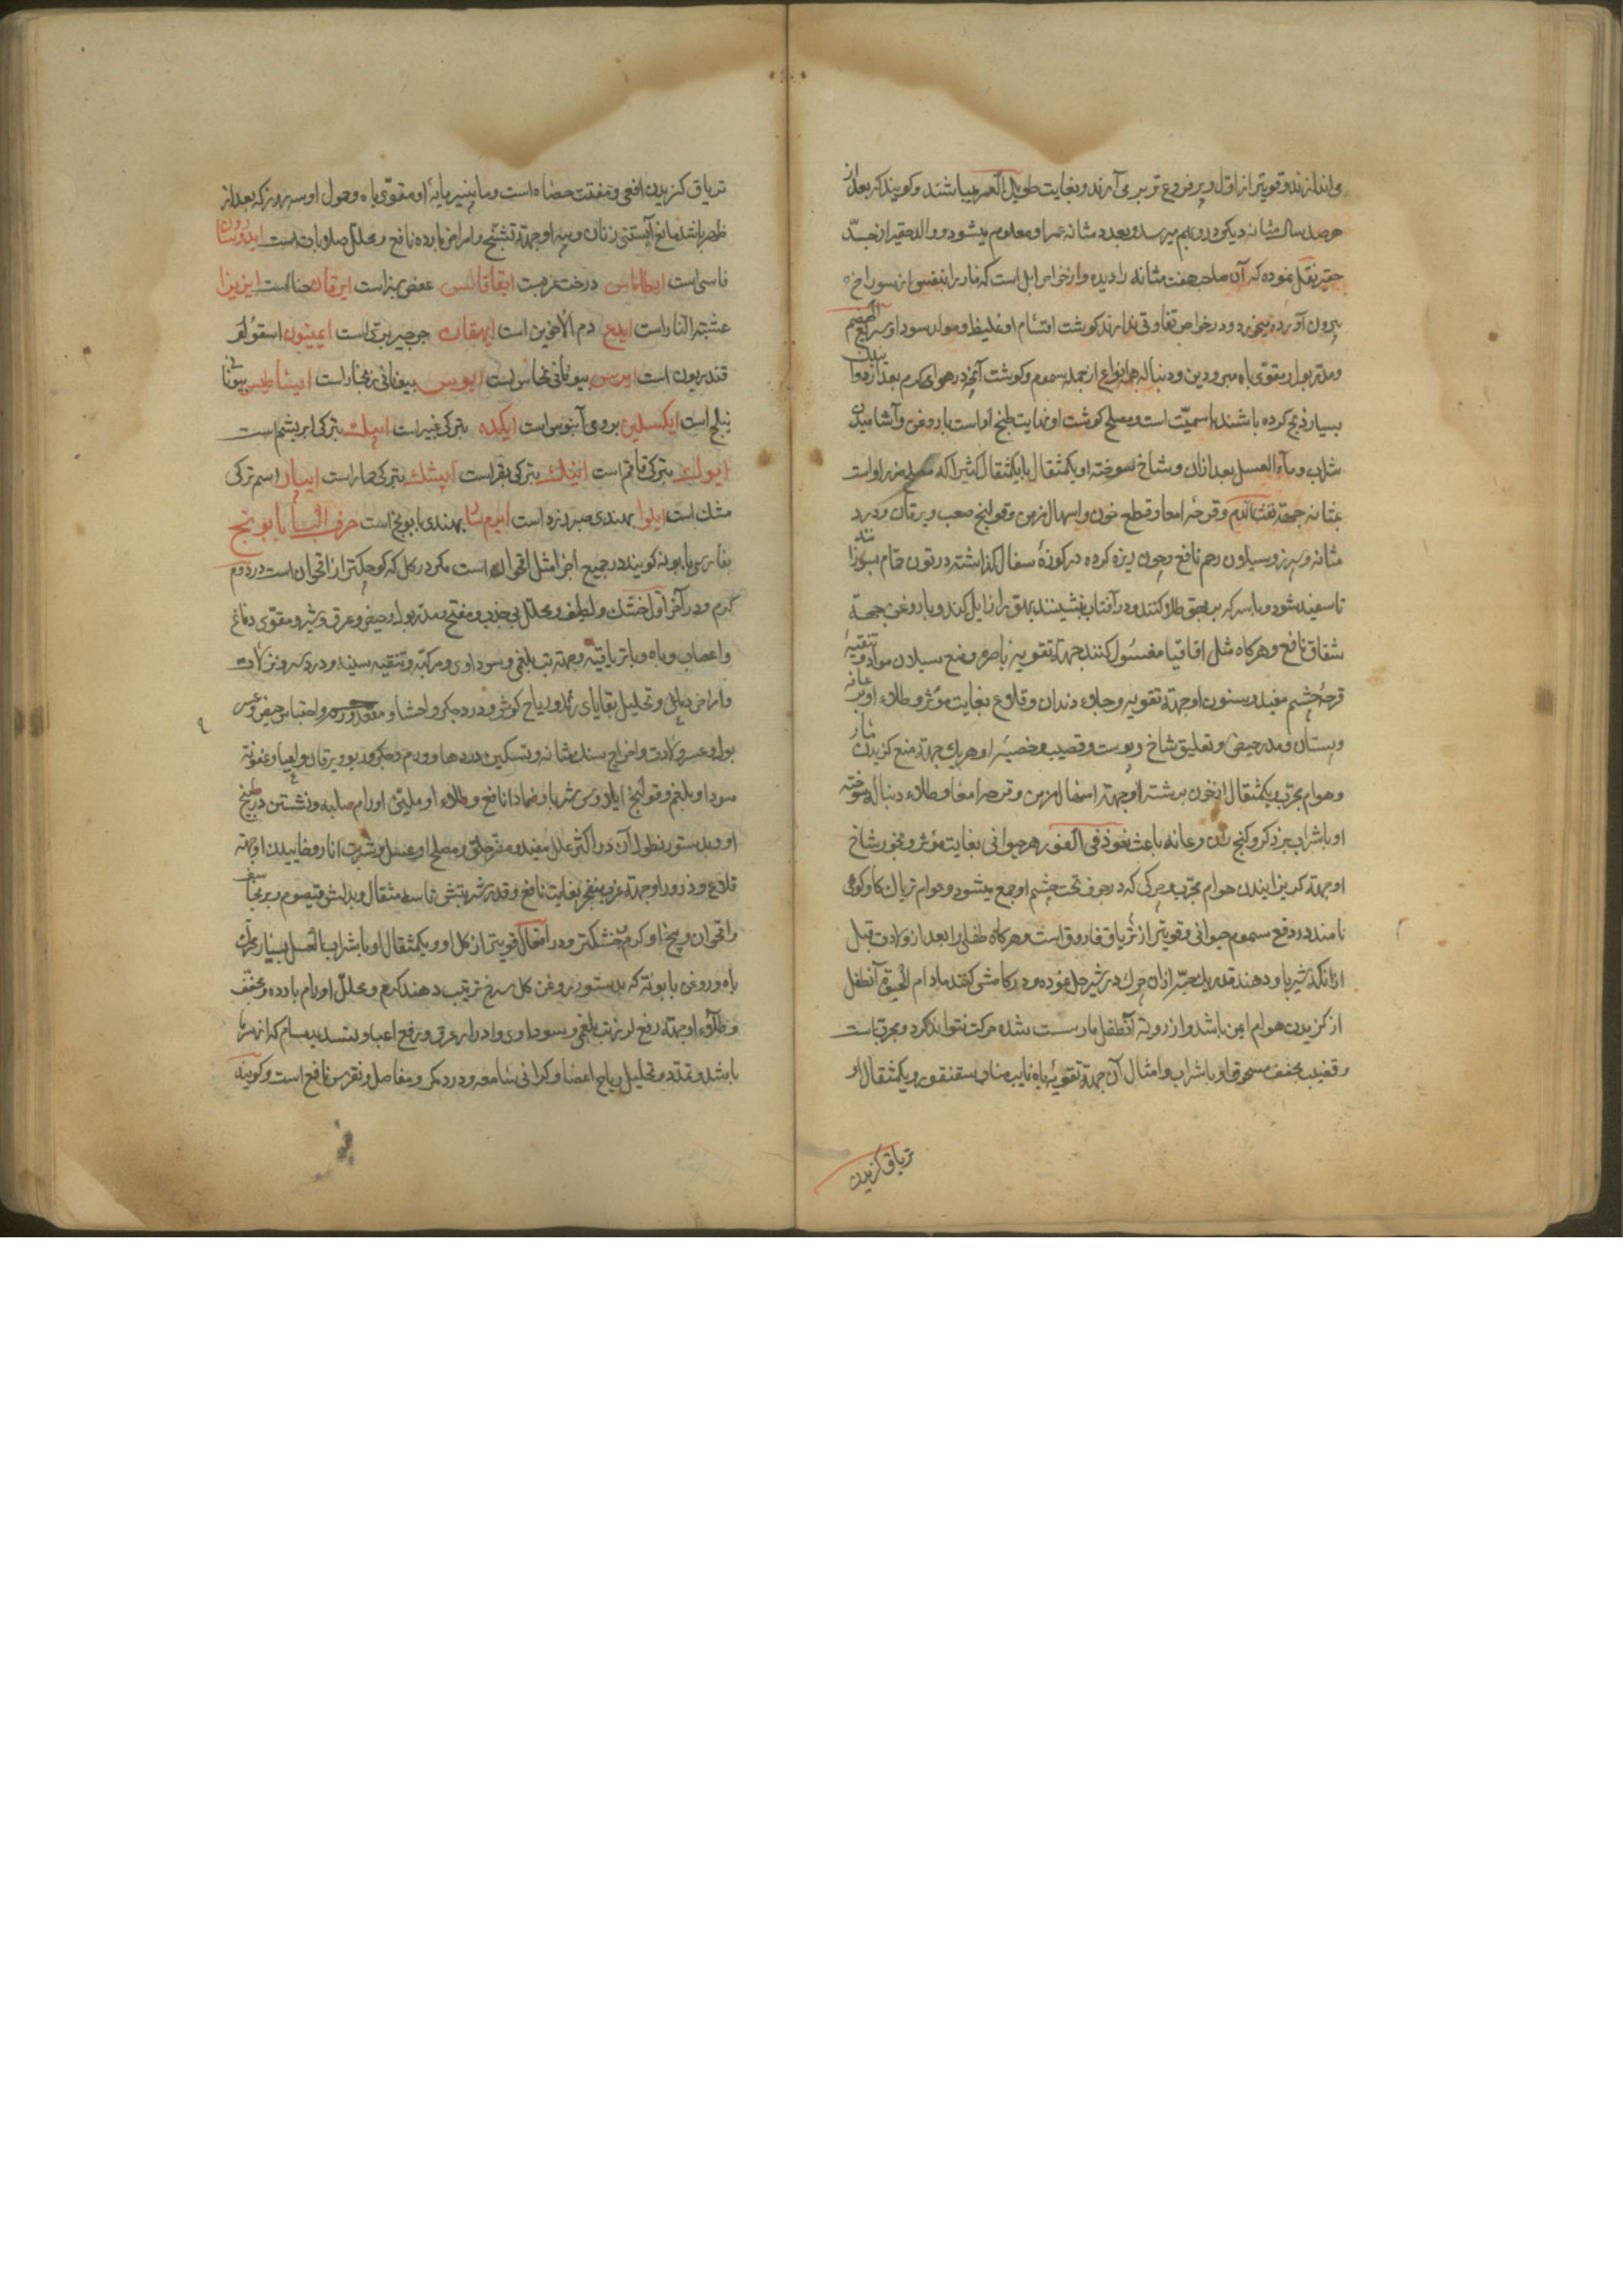 می‌اندازند و قویتر از اول و پر فروع تر بر می‌آرند و بغایت طویل العمر میباشند و کویند که بعد از
هر صد سال مثانهٔ دیکر در و بهم میرسد و بعدد مثانه عمر او معلوم میشود و والد حقیر از جدّ
حقیر نقل نموده که آن صاحب هفت مثانه را دیده و از خواص ابل است که مار را بتنفس از سوراخ
بیرون آورده میخورد و در خواص تفاوتی ندارند کوشت اقسام او غلیظ و مولد سودا و سریع الهضم
و مدر بول و مقوی باه مبرودین و دنباله همه انواع از جمله سموم و کوشت آنچه در هوای کرم بعد از دوانیدن
بسیار ذبح کرده باشند با سمیّت است و مصلح کوشت او نهایت طبخ او است با روغن و آشامیدن
شراب و ماء العسل بعد از ان و شاخ سوخته او یکمثقال با یکمثقال کثیرا که مصلح ضرر او است
بمثانه جهة نفث الدم و قرحه امعا و قطع خون و اسهال مزمن و قولنج صعب و یرقان و درد
مثانه و سپرز و سیلان رحم نافع و چون ریزه کرده در کوزهٔ سفال کذاشته در تون حمام بسوزانند
تا سفید شود و با سرکه بر بهق طلا کنند و در آفتاب بنشینند بهق را زایل کند و با روغن جهة
شقاق نافع و هرکاه مثل اقاقیا مغسول کنند جهة تقویهٔ باصره و منع سیلان مواد و تنقیهٔ
قرحهٔ چشم مفید و سنون او جهة تقویه و جلاء دندان و قلاع بغایت مؤثر و طلاء او بر عانه
و پستان و مدر حیض و تعلیق شاخ و پوست و قضیب و خصیه او هر یک جهة منع کزیدن مار
و هوام مجرّب و یکمثقال از خون برشته او جهة اسهال مزمن و قرحه امعا و طلاء دنبال سوخته
او با شراب بر ذکر و کنج ران و عانه باعث نعوذ فی الفور هر حیوانی بغایت مؤثر و بخور شاخ
او جهة کریزانیدن هوام مجرّب و چرکی که در جوف تحت چشم او جمع میشود و عوام تریاک کاو کوهی
نامند در دفع سموم حیوانی و قویتر از تریاق فاروق است و هرکاه طفلی را بعد از ولادت قبل
از آنکه شیر باو دهند قدر یک حبّه از ان چرک در شیر حل نموده و در کامش کشند مادام الحیوة آنطفل
از کزیدن هوام ایمن باشد و از رویة آنطفل مار سست شده حرکت نتواند کرد و مجرّبست
و قضیب مجفف مسحوق او با شراب و امثال آن جهة تقویهٔ باه نایب مناب سقنقور و یکمثقال او
تریاق کزیدن
تریاق کزیدن افعی و مفتت حصاة است و پنیر مایهٔ او مقوی باه و حمول او سه روز که بعد از
طهر باشد مانع آبستنی زنان و پیه او جهة تشنج و امراض بارده نافع و محلل صلابات است
فاسی است درخت عرب است ایقاقالس عفص سبز است ایرقان حنا است ایزیزا
عشبة النار است ایدع دم الاخوین است ایهقان جرجیر برّی است ایمینون اسقولو
قندریون است بیونانی نحاس است ایوس بیونانی زنجار است بیونانی
نیلج است برومی آبنوس است ایکده بترکی غبیرا است ایپک بترکی ابریشم است
بترکی قاقم است اینک بترکی بقر است ایشک بترکی حمار است ایپار اسم ترکی
مشک است ایلوا بهندی صبر زرد است بهندی بابونج است حرف البا بابونج
بفارسی بابونه کویند در جمیع اجزا مثل اقحوان است مکر در کل که کوچکتر از اقحوان است در دوم
کرم و در آخر اول خشک و ملطف و محلل بی جذب و مفتح و مدر بول و حیض و عرق و شیر و مقوی دماغ
و اعصاب و باه و با تریاقیه و جهة تب بلغمی و سوداوی و مرکبه و تنقیه سینه و درد سر و نزلات
و امراض دماغی و تحلیل بقایای رمد و ریاح کوش و درد جکر و احشا و مقعد و رحم و احتباس حیض و عسر
بول و عسر ولادت و اخراج سنک مثانه و تسکین دردها و ورم جکر و ربو و یرقان و اعیا و عفونة
سودا و بلغم و قولنج ایلاوس شربا و ضمادا نافع و طلاء او ملین اورام صلبه و نشستن در طبیخ
او و بدستور نطول آن در اکثر علل مفید و مضر حلق و مصلح او عسل و شربت انار و خاییدن او جهة
قلاع و ذرور او جهة غرب منفجر بغایت نافع و قدر شربتش تا سه مثقال و بدلش قیصوم و برنجاسف
و اقحوان و بیخ او کرم و خشکتر و در افعال قویتر از کل او و یکمثقال او با شراب العسل بسیار محرک
باه و روغن بابونه که بدستور روغن کل سرخ ترتیب دهند کرم و محلل اورام بارده و مجفف
و طلاء او جهة رفع لرز تب بلغمی و سوداوی و ادرار عرق و رفع اعیا و تسدید مسام که از سرما
باشد و تمدد و تحلیل ریاح اعضا و کرانی سامعه و درد کمر و مفاصل و نقرس نافع است و کویند